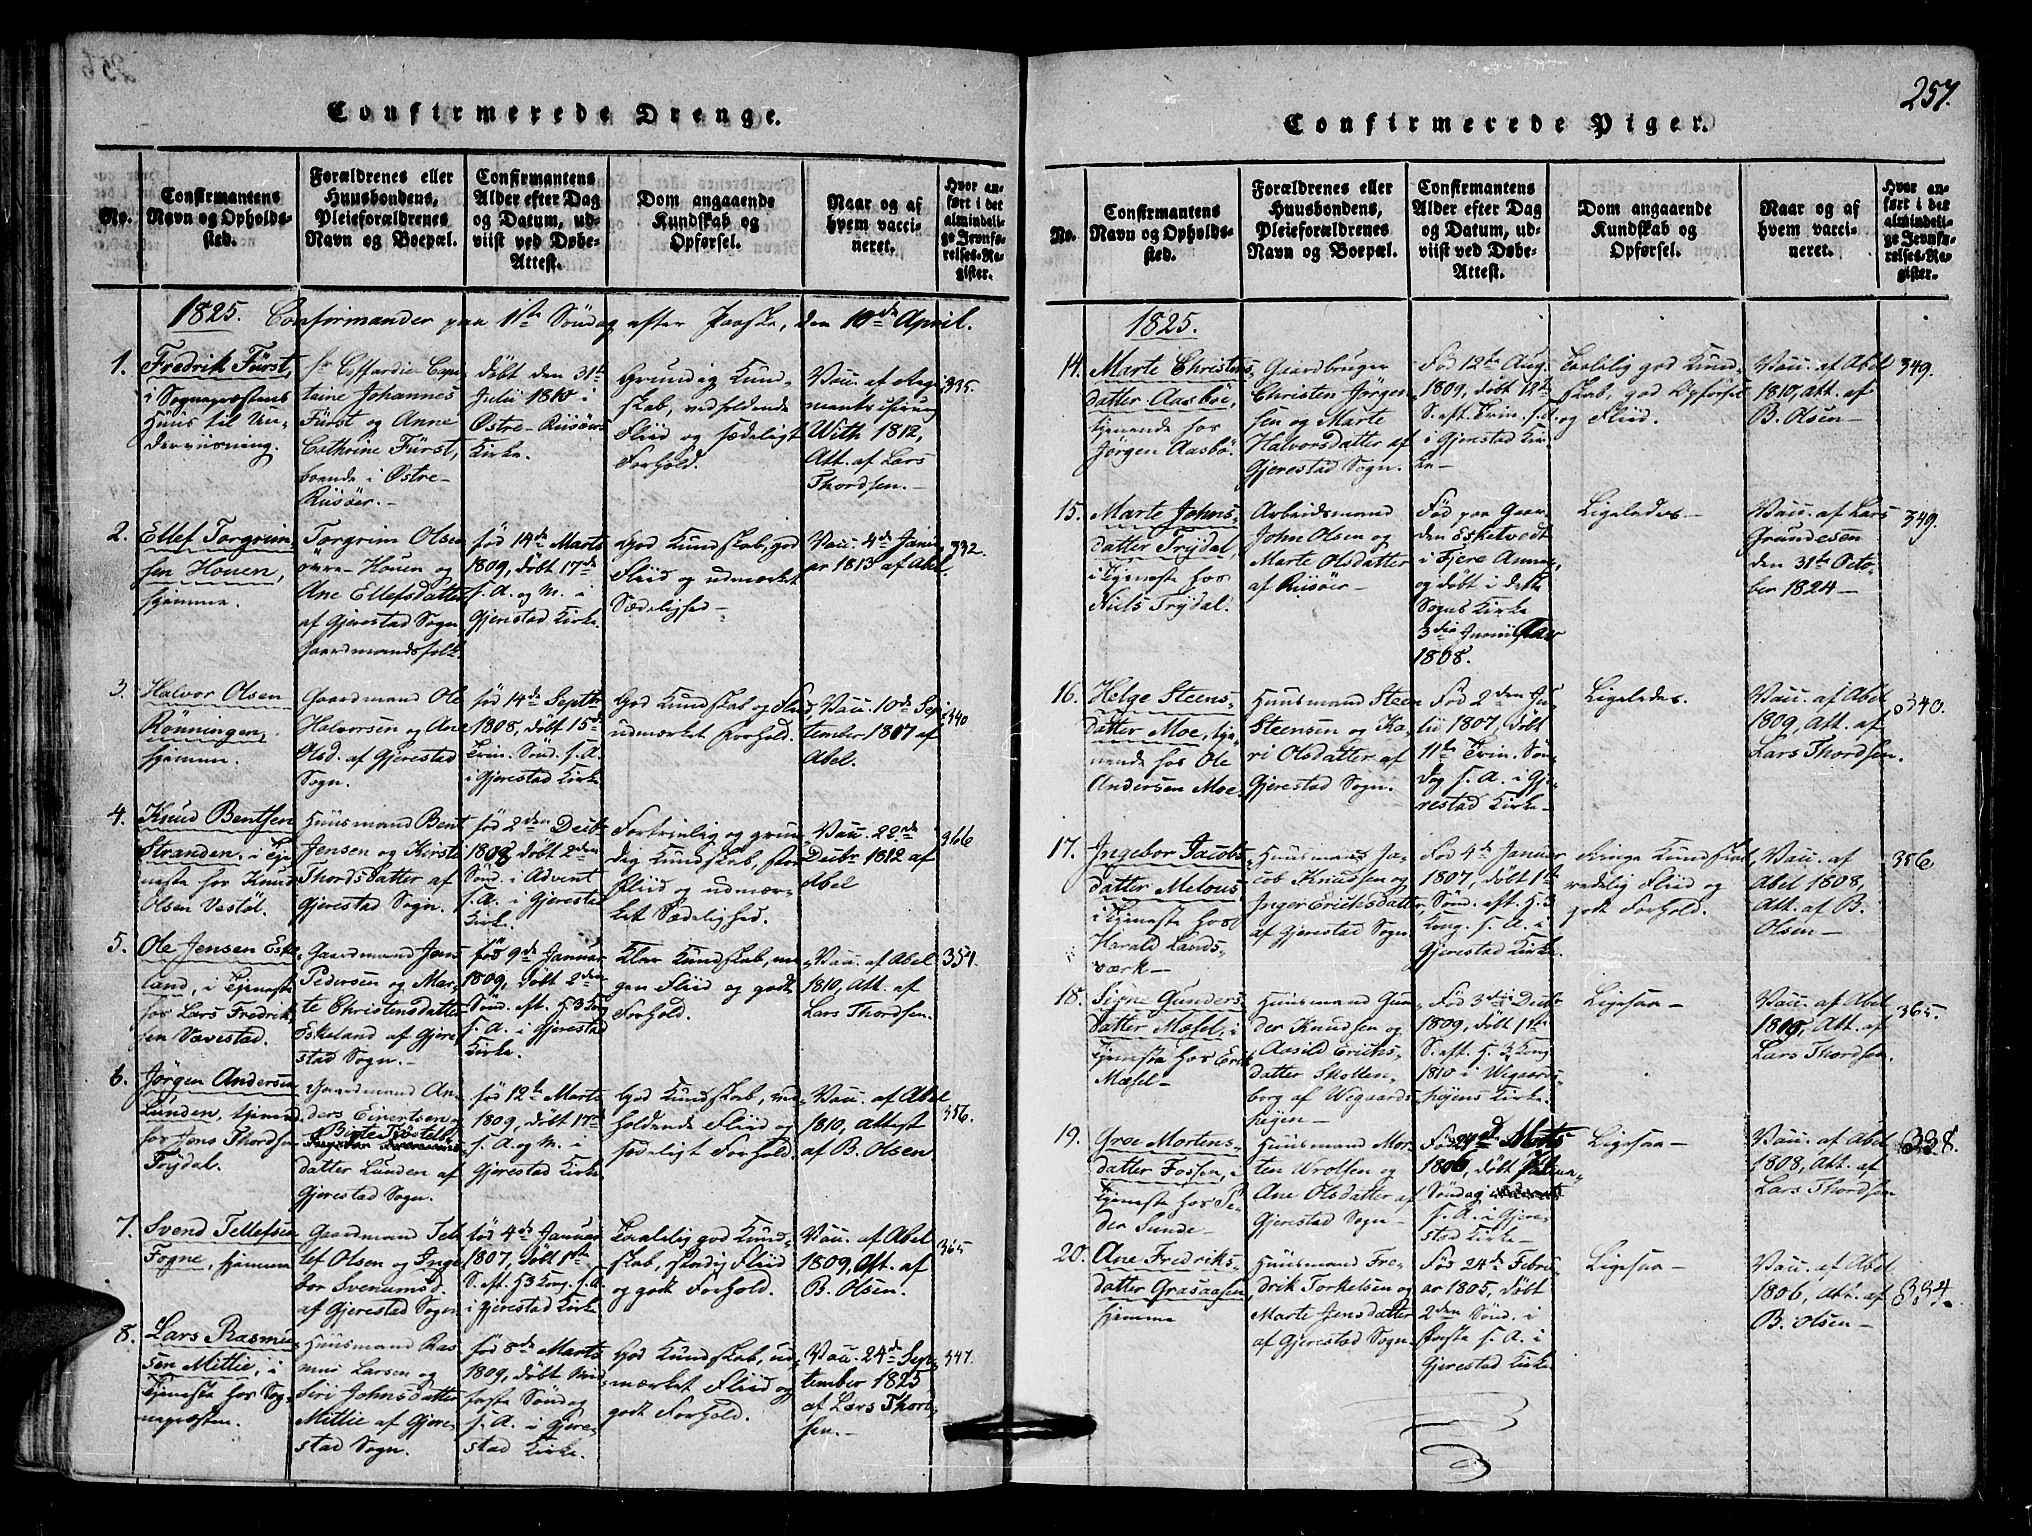 Confirmerede Drenge.
No.
Confirmantens
Navn og Opholds-
sted.
Forældrenes eller
Huusbondens,
Pleieforældrenes
Navn og Boepæl.
Confirmantens
Alder efter Dag
og Datum, ud-
viist ved Døbe-
Attest.
Dom angaaende
Kundskab og
Opførsel.
Naar og af
hvem vacci-
neret.
Hvor an-
ført i det
almindeli-
ge Jevnfø-
relses-Re-
gister.
1825. Confirmander paa 1ste Söndag after Paaske, den 10de April.
1.
Fredrik Fürst,
i Sognepræstens
Huus til Un-
derviisning.
Cofferdie Cap-
taine Johannes
Fürst og Anne
Cathrine Fürst,
boende i Østre-
Riisöer.
Döbt den 31te
Julii 1810 i
Østre-Riisöers
Kirke.
Grundig Kund-
skab, vedholdende
Fliid og sædeligt
Forhold.
Vacc. af Regi-
With 1812,
Att. af Lars
Thordsen.-
335.
2.
Ellef Torgrim-
sen Houen,
hjemme.
Torgrim Olsen
övre-Houen og
Ane Ellefsdatter
af Gjerestad Sogn
Gaardmandsfolk.
född 14de Marts
1809, döbt 17de
S. A. og M. i
Gjerestad Kirke.
God Kundskab, god
Fliid og udmærket
Sædelighed-
Vacc. 4de Janu-
ar 1813 af Abel.
332.
3.
Halvor Olsen
Rönningen,
hjemme.
Gaardmand Ole
Halvorsen og Ane
Olsd. af Gjerestad
Sogn.
fød 14de Septbr
1808, döbt 15de
Trin. Sönd. s. A.
i Gjerestad Kirke
God Kundskab og Fliid,
udmærket Forhold.
Vacc. 10de Sep-
tember 1807 af
Abel.
340
4.
Knud Bentsen
Stranden, i Tje-
neste hos Knud
Olsen Vestöl.
Huusmand Bent
Jensen og Kirste
Thordsdatter af
Gjerestad Sogn.
fød 2den Decbr
1808, döbt 2den
Sönd. i Advent
s. A. i Gjerestad
Kirke.
Fortrinlig og grun-
dig Kundskab, stor
Fliid og udmær-
ket Sædelighed.
Vacc. 22de
Decbr. 1812 af
Abel
366
5.
Ole Jensen Eske-
land, i Tjeneste
hos Lars Fredrik-
sen Vævestad.
Gaardmand Jens
Pedersen og Mar-
te Christensdatter
Eskeland af Gjere-
stad Sogn.
fød 9de Januar
1809, döbt 2den
Sönd. eft. H 3 Kong
s. A. i Gjerestad
Kirke.
Klar Kundskab, me-
gen Fliid og godt
Forhold.
Vacc. af Abel
1810, Att. af
Lars Thordsen.
354.
6.
Jörgen Andersen
Lunden, tjenend
hos Jens Thordsen
Trydal.
Gaardmand An-
ders Einertsen og
datter Lunden af
Gjerestad Sogn.
fød 12te Marts
1809, döbt 17de
s. A. og M. i
Gjerestad Kirke
God Kundskab, ved-
holdende Fliid og
sædeligt Forhold.
Vacc. af Abel
1810, Attest
af B. Olsen
356.
7.
Svend Tellefsen
Fogne, hjemme
Gaardmand Tel-
lef Olsen og Inge-
bor Svenumsd.
af Gjerestad Sogn
fød 4de Januar
1807, döbt 1ste
S. eft. H 3 Kong. s. A.
i Gjerestad Kirke
Taalelig god Kund-
skab, stadig Fliid
og godt Forhold.
Vacc. af Abel
1809, Att. af
B. Olsen.
365
8.
Lars Rasmus-
sen Mittie, i
Tjeneste hos Sog-
nepræsten.
Huusmand Ras-
mus Larsen og
Siri Johnsdatter
Mittie af Gjere-
stad Sogn.
fød 8de Marts
1809, döbt Mid-
faste Söndag
s. A. i Gjere-
stad Kirke.
God Kundskab, ud-
mærket Fliid og
godt Forhold.
Vacc. 24de Sep-
tember 1825
af Lars Thord-
sen.-
347.
257.
Confirmerede Piger.
No.
Confirmantens
Navn og Opholds-
sted.
Forældrenes eller
Huusbondens,
Pleieforældrenes
Navn og Boepæl.
Confirmantens
Alder efter Dag
og Datum, ud-
viist ved Døbe-
Attest.
Dom angaaende
Kundskab og
Opførsel.
Naar og af
hvem vacci-
neret.
Hvor an-
ført i det
almindeli-
ge Jevnfø-
relses-Re-
gister.
1825.
14.
Marte Christens-
datter Aasböe,
tjenende hos
Jörgen Aasbö.
Gaardbruger
Christen Jörgen-
sen og Marte
Halvorsdatter af
Gjerestad Sogn.
Fød 12te Aug.
1809, döbt 12te
S. aft. Trin. s. A.
i Gjerestad Kir-
ke-
Taalelig god Kund-
skab, god Opförsel
og Fliid.
Vacc. af Abel
1810, Att. af
B. Olsen-
349.
15.
Marte Johns-
datter Trydal,
i Tjeneste hos
Niels Trydal.
Arbeidsmand
John Olsen og
Marte Olsdatter
af Riisöer-
Fød paa Gaar-
den Eskelvedt
i Gjere Annex
og döbt i dette
Sogns Kirke
3die Junii
1808.
Ligeledes-
Vacc. af Lars
Grundesen
den 31te Octo-
ber 1824-
349.
16.
Helge Steens-
datter Moe, tje-
nende hos Ole
Andersen Moe.
Huusmand Steen
Steensen og Ka-
ri Olsdatter af
Gjerestad Sogn.
Fød 2den Ju-
lii 1807, döbt
11te Trin. Sön-
dag s. A. i Gje-
restad Kirke-
Ligeledes.
Vacc. af Abel
1809, Att. af
Lars Thordsen.
340.
17.
Ingebor Jacobs-
datter Melous
i Tjeneste hos
Harald Lands-
værk-
Huusmand Ja-
cob Knudsen og
Inger Erichsdatter
af Gjerestad Sogn
Fød 4de Januar
1807, döbt 1ste
Sönd. aft. H. 3
Kong. s. A. i
Gjerestad Kirke
Ringe Kundskab,
redelig Fliid og
godt Forhold.
Vacc. af
Abel 1808,
Att. af B.
Olsen-
356
18.
Signe Gunders-
datter Mæsel, i
Tjeneste hos Erik
Mæsel-
Huusmand Gun-
der Knudsen og
Aasild Erichs-
datter Skotten-
borg af Wegaards-
heien-
Fød 3die Decbr
1809, döbt 1ste
S. aft. H. 3 Kong.
1810 i Wegaards-
høiens Kirke-
Ligesaa-
Vacc. af Abel
1810, Att. af
Lars Thordsen.
365.
19.
Groe Mortens-
datter Fossen, i
Tjeneste hos Pe-
der Sunde-
Huusmand Mor-
ten Wrolsen og
Ane Olsdatter af
Gjerestad Sogn-
Fød 24de Marts
1806, döbt Palme-
Söndag
s. A. i Gjere-
stad Kirke-
Ligesaa-
Vacc. af Abel
1808, Att. af
Lars Thordsen
338.
20.
Ane Fredriks-
datter Grasaasen,
hjemme
Huusmand Fre-
drik Torkelsen og
Marte Jensdatter
af Gjerestad Sogn-
Fød 24de Febru-
ar 1805, döbt
2den Sönd. i
Faste s. A. i
Gjerestad Kirke
Ligesaa-
Vacc. af Abel
1806, Att. af
B. Olsen-
334.